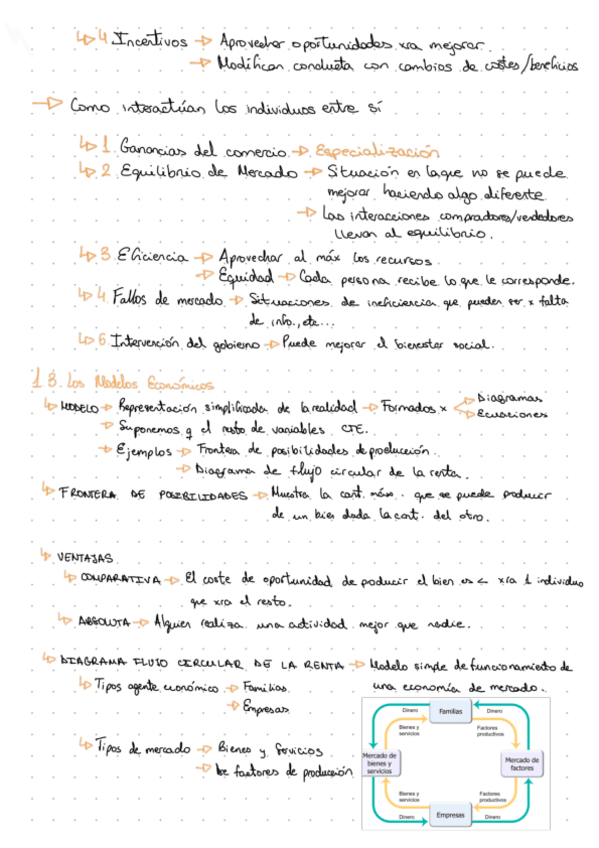 ↳ 4. Incentivos → Aprovechar oportunidades xra mejorar.
→ Modifican conducta con cambios de costes/beneficios
→ Como interactúan los individuos entre sí
↳ 1. Ganancias del comercio → Especialización
↳ 2. Equilibrio de Mercado → Situación en la que no se puede
mejorar haciendo algo diferente
→ Las interacciones compradores/vendedores
llevan al equilibrio.
↳ 3. Eficiencia → Aprovechar al máx los recursos.
→ Equidad → Cada persona recibe lo que le corresponde.
↳ 4. Fallos de mercado → Situaciones de ineficiencia que pueden ser x falta
de info., etc...
↳ 5. Intervención del gobierno → Puede mejorar el bienestar social.
1.3. Los Modelos Económicos
↳ MODELO → Representación simplificada de la realidad → Formados x
Diagramas
Ecuaciones
→ Suponemos q el resto de variables CTE.
→ Ejemplos → Frontera de posibilidades de producción.
→ Diagrama de flujo circular de la renta.
↳ FRONTERA DE POSIBILIDADES → Muestra la cant. máx. que se puede producir
de un bien dada la cant. del otro.
↳ VENTAJAS
↳ COMPARATIVA → El coste de oportunidad de poducir el bien es < xra 1 individuo
que xra el resto.
↳ ABSOLUTA → Alguien realiza una actividad mejor que nadie.
↳ DIAGRAMA FLUJO CIRCULAR DE LA RENTA → Modelo simple de funcionamiento de
una economía de mercado.
↳ Tipos agente económico → Familias
→ Empresas
↳ Tipos de mercado → Bienes y servicios
→ De factores de producción
Dinero
Familias
Dinero
Bienes y
servicios
Factores
productivos
Mercado de
bienes y
servicios
Mercado de
factores
Bienes y
servicios
Factores
productivos
Dinero
Empresas
Dinero